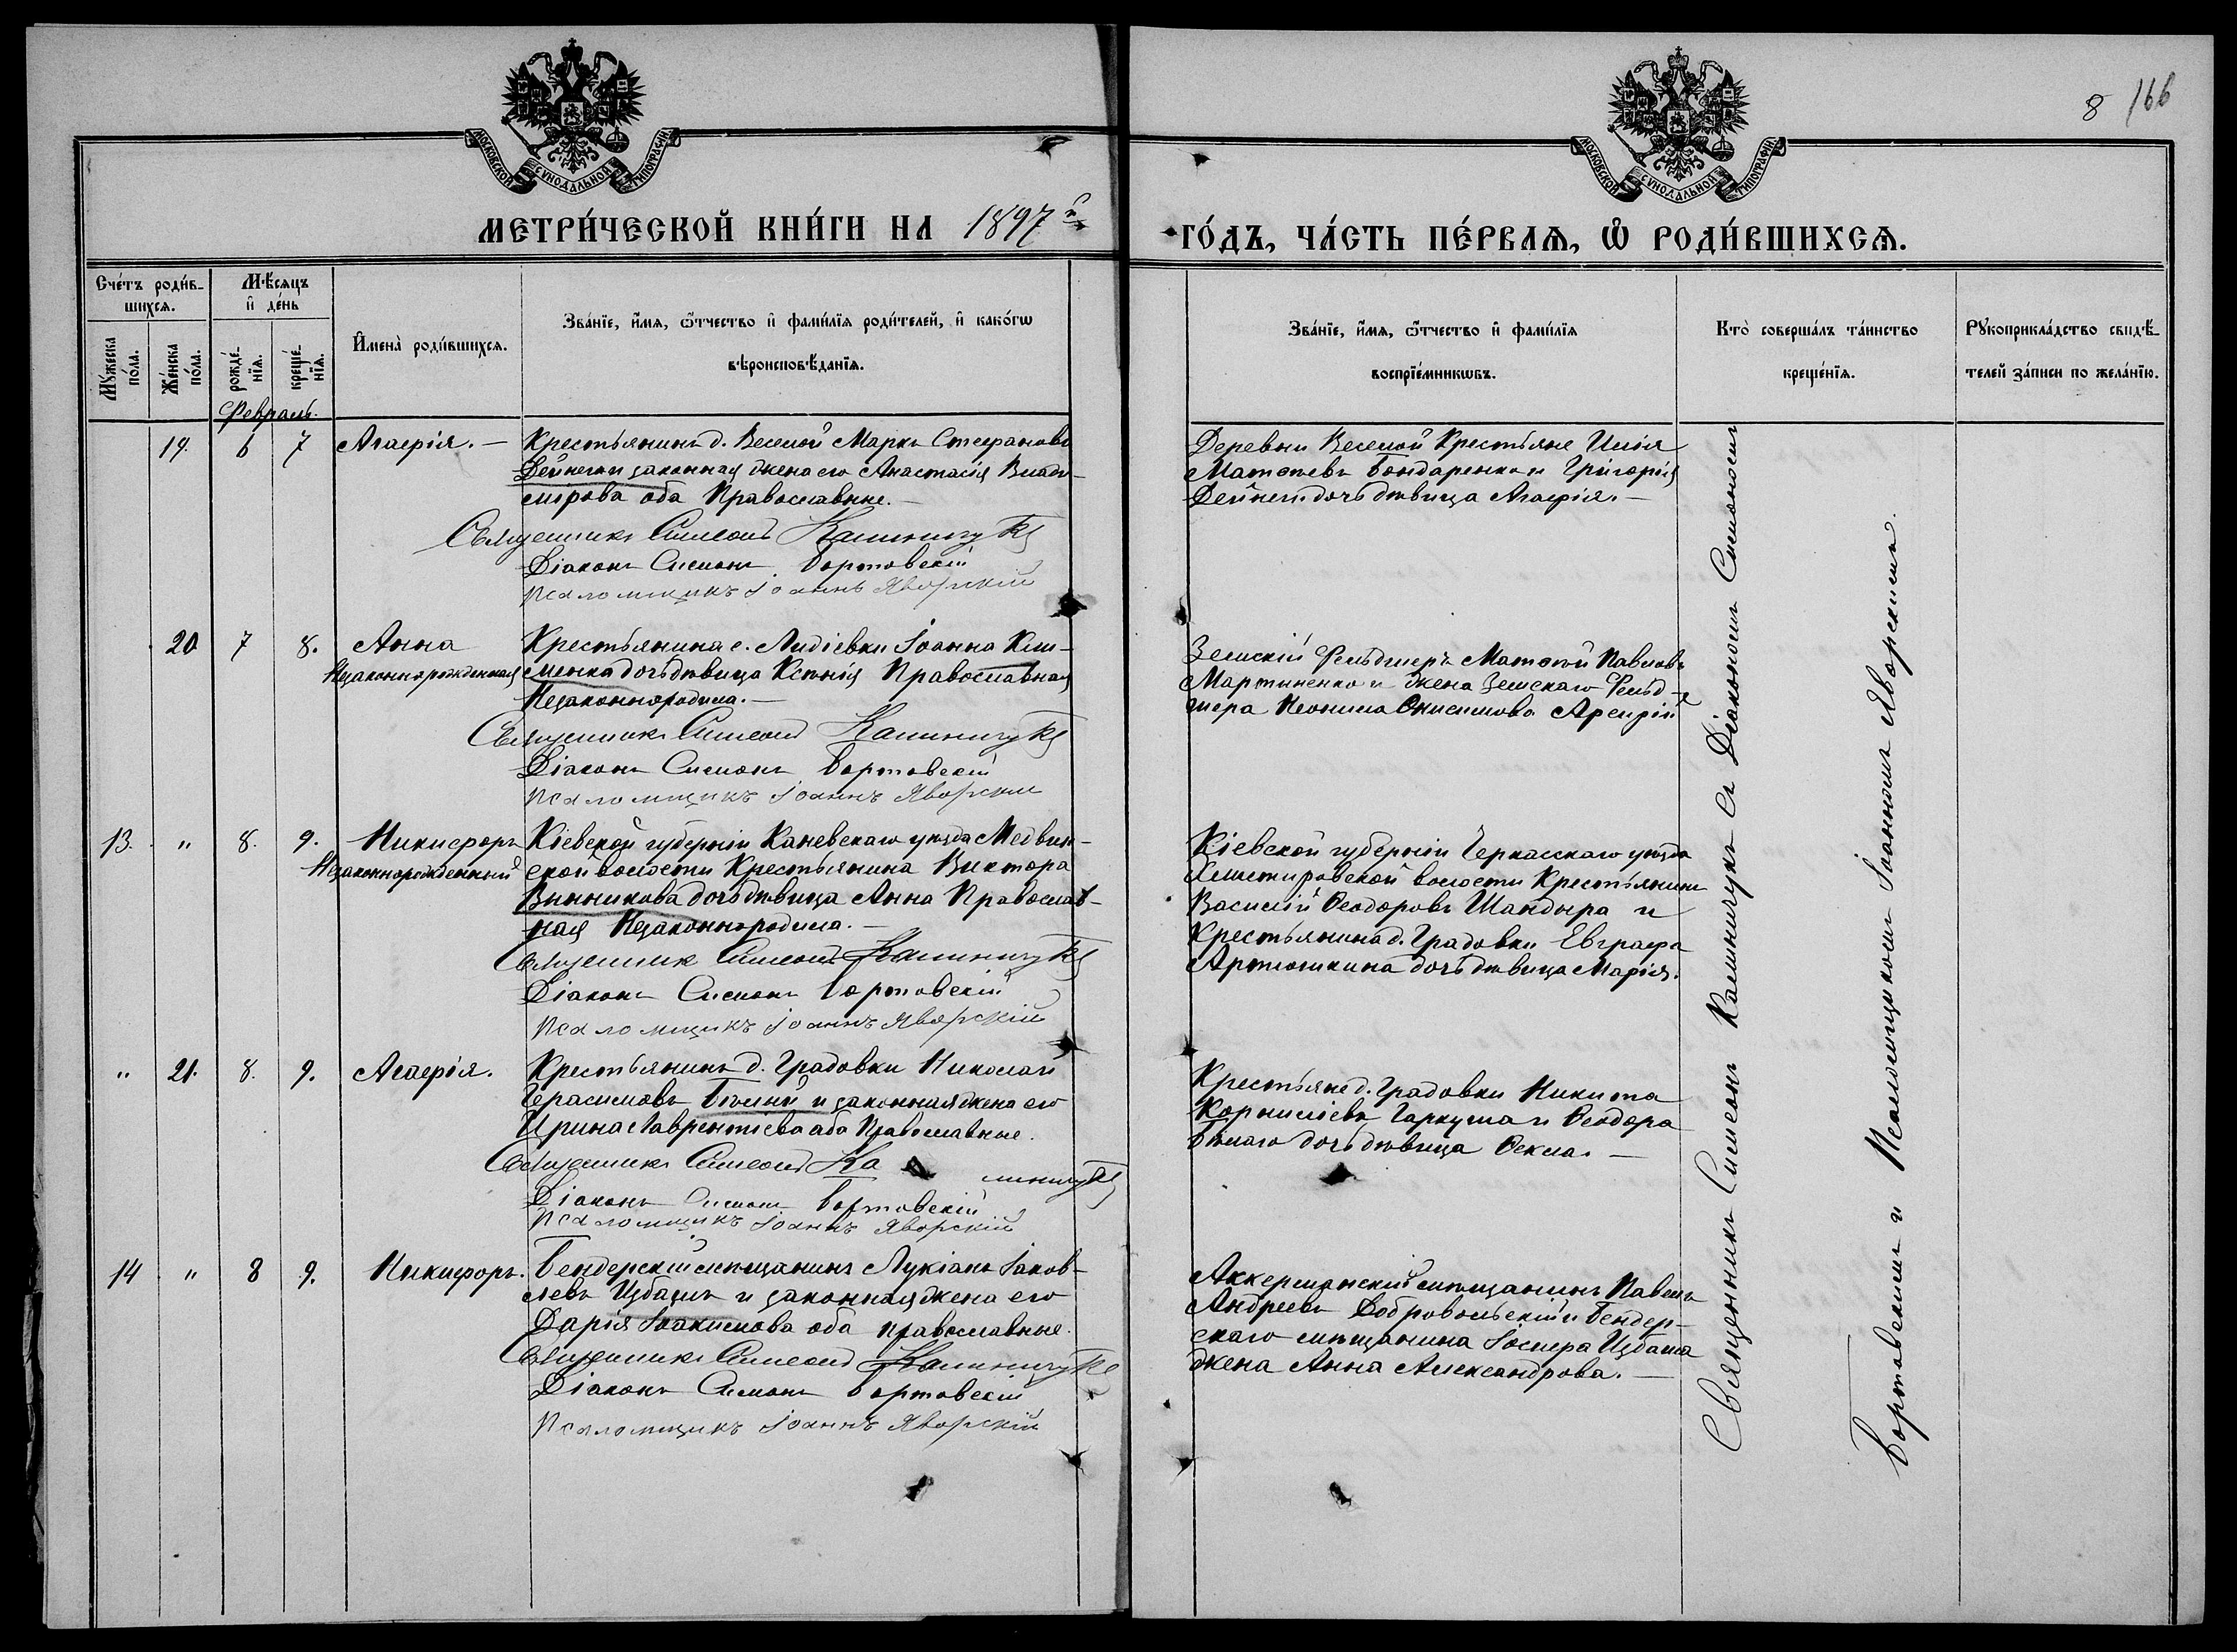 8 166
МОСКОВСКОЙ СѴНОДАЛЬНОЙ ТИПОГРАФІИ
МОСКОВСКОЙ СѴНОДАЛЬНОЙ ТИПОГРАФІИ
МЕТРИ́ЧЕСКОЙ КНИ́ГИ НА 1897 й
ГО́ДЪ, ЧА́СТЬ ПЕ́РВАѦ, Ѽ РОДИ́ВШИХСѦ.
Сче́тъ роди́в-
шихсѧ.
Мѣ́сѧцъ
и҆ де́нь
Мꙋ́жеска по́ла.
Же́нска по́ла.
рожде́-нїѧ.
креще́-нїѧ.
И҆мена̀ роди́вшихсѧ.
Зва́нїе, и҆́мѧ, ѻ҆́тчество и҆ фами́лїѧ роди́телей, и҆ како́гѡ
вѣроисповѣ́данїѧ.
Зва́нїе, и҆́мѧ, ѻ҆́тчество и҆ фами́лїѧ
воспрїе́мникѡвъ.
Кто̀ соверша́лъ та́инство
креще́нїѧ.
Рꙋкоприкла́дство свидѣ́-
телей за́писи по жела́нїю.
Февраль.
19. 6 7 Агафія. — Крестьянинъ д. Веселой Маркъ Стефановъ
Дейнега и законная жена его Анастасія Влади-
мірова оба Православные. —
Священникъ Симеонъ Калиничукъ
Діаконъ Симонъ Бортовскій
Псаломщикъ Іоаннъ Яворскій
Деревни Веселой Крестьяне Илія
Матѳеевъ Бондаренко и Григорія
Дейнеги дочь дѣвица Агафія. —
20 7 8. Анна
Незаконнорожденная
Крестьянина с. Лидіевки Іоанна Кли-
менка дочь дѣвица Ксенія Православная
Незаконнородила. —
Священникъ Симеонъ Калиничукъ
Діаконъ Симонъ Бортовскій
Псаломщикъ Іоаннъ Яворскій
Земскій Фельдшеръ Матѳей Павловъ
Мартиненко и жена Земскаго Фельд-
шера Неонила Онисимова
13. " 8. 9. Никифоръ
Незаконнорожденный
Кіевской губерніи Каневскаго уѣзда Медвин-
ской волости Крестьянина Виктора
Винникова дочь дѣвица Анна Православ-
ная Незаконнородила. —
Священникъ Симеонъ Калиничукъ
Діаконъ Симонъ Бортовскій
Псаломщикъ Іоаннъ Яворскій
Кіевской губерніи Черкасскаго уѣзда
волости Крестьянинъ
Василій Ѳеодоровъ Шандыра и
Крестьянина д. Градовки Евграфа
Артюшкина дочь дѣвица Марія.
" 21. 8. 9. Агафія. Крестьянинъ д. Градовки Николай
Герасимовъ Бѣлый и законная жена его
Ирина Лаврентіева оба Православные.
Священникъ Симеонъ Калиничукъ
Діаконъ Симонъ Бортовскій
Псаломщикъ Іоаннъ Яворскій
Крестьяне д. Градовки Никита
Корниліевъ Гаркуша и Ѳеодора
Бѣлаго дочь дѣвица Ѳекла. —
14 " 8 9. Никифоръ. Бендерскій мѣщанинъ Лукіанъ Іаков-
левъ Избашъ и законная жена его
Дарія Іоакимова оба православные.
Священникъ Симеонъ Калиничукъ
Діаконъ Симонъ Бортовскій
Псаломщикъ Іоаннъ Яворскій
Аккерманскій мѣщанинъ Павелъ
Андреевъ Добровольскій и Бендер-
скаго мѣщанина Іосифа Избаша
жена Анна Александрова. —
Священникъ Симеонъ Калиничукъ съ Діакономъ Симономъ
Бортовскимъ и Псаломщикомъ Іоанномъ Яворскимъ.